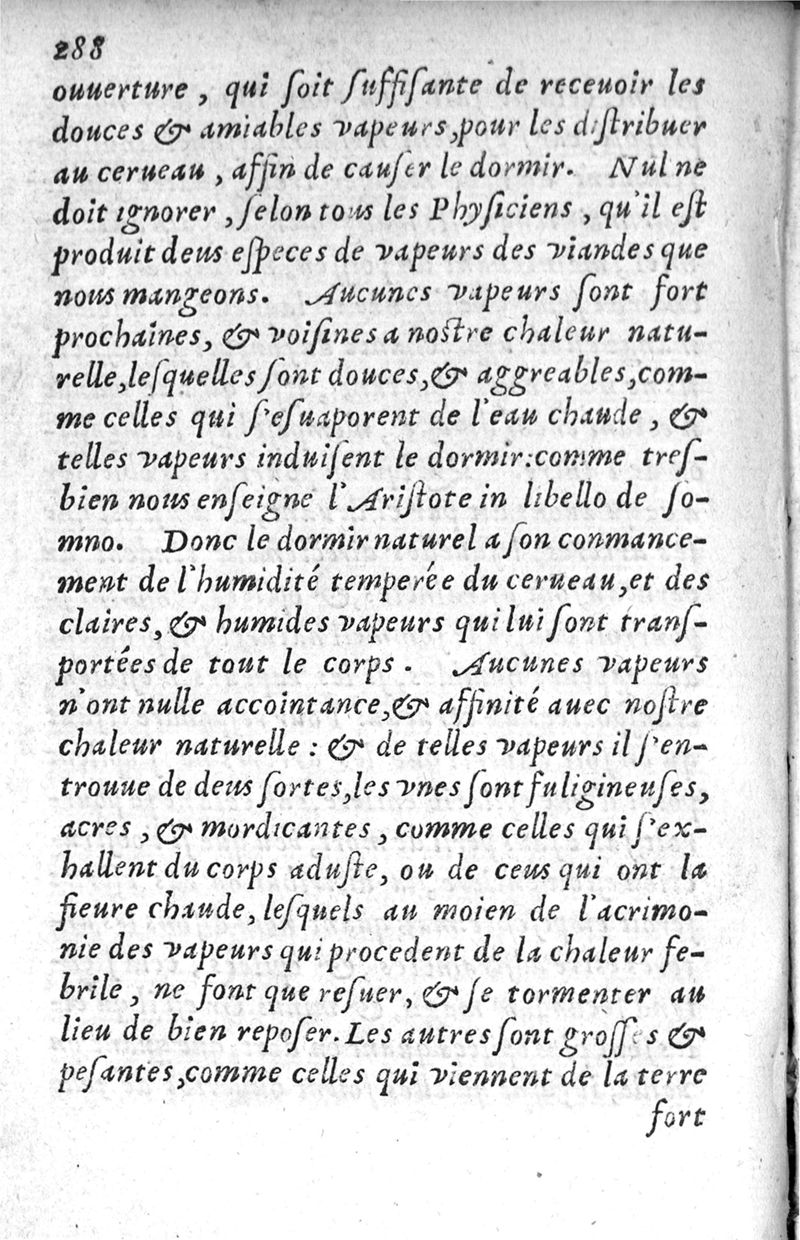 288
ouuerture , qui ſoit ſuffiſante de receuoir les
douces & amiables vapeurs,pour les diſtribuer
au cerueau , affin de cauſer le dormir. Nul ne
doit ignorer ,ſelon tous les Phyſiciens , qu'il eſt
produit deus eſpeces de vapeurs des viandes que
nous mangeons. Aucunes vapeurs ſont fort
prochaines, & voiſines a noſtre chaleur natu-
relle,leſquelles ſont douces,& aggreables,com-
me celles qui ſ'eſuaporent de l'eau chaude , &
telles vapeurs induiſent le dormir:comme treſ-
bien nous enſeigne l'Ariſtote in libello de ſo-
mno. Donc le dormir naturel a ſon conmance-
ment de l'humidité temperée du cerueau,et des
claires, & humides vapeurs qui lui ſont tranſ-
portées de tout le corps . Aucunes vapeurs
n'ont nulle accointance,& affinité auec noſtre
chaleur naturelle : & de telles vapeurs il ſ'en-
trouue de deus ſortes,les vnes ſont fuligineuſes,
acres , & mordicantes , comme celles qui ſ'ex-
hallent du corps aduſte, ou de ceus qui ont la
fieure chaude, leſquels au moien de l'acrimo-
nie des vapeurs qui procedent de la chaleur fe-
brile , ne font que reſuer, & ſe tormenter au
lieu de bien repoſer. Les autres ſont groſſes &
peſantes,comme celles qui viennent de la terre
fort